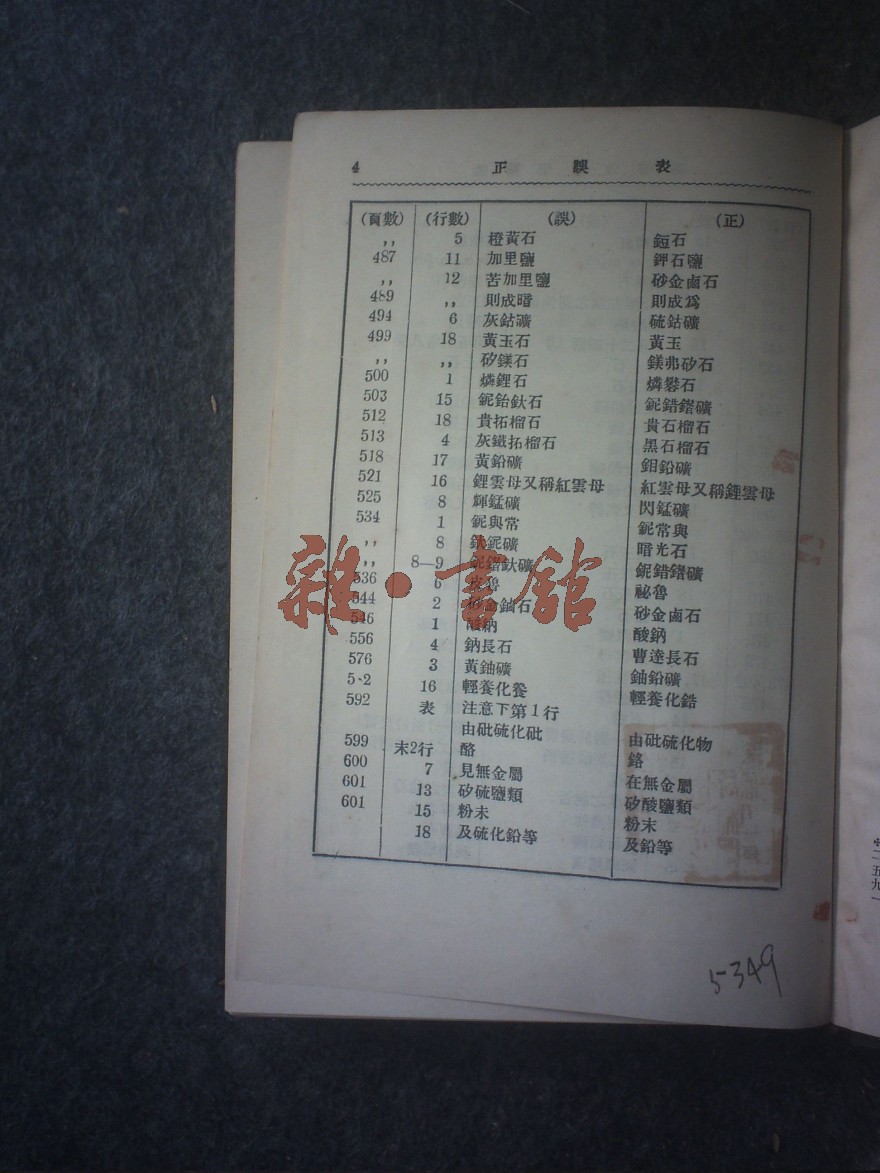 4 正誤表
(頁數) (行數) (誤) (正)
,, 5 橙黃石 鋀石
487 11 加里鹽 鉀石鹽
,, 12 苦加里鹽 砂金鹵石
489 ,, 則成暗 則成爲
494 6 灰鈷礦 硫鈷礦
499 18 黃玉石 黃玉
,, ,, 矽鎂石 鎂弗矽石
500 1 燐鋰石 燐礬石
503 15 鈮鈶鈦石 鈮錯鐕礦
512 18 貴拓榴石 貴石榴石
513 4 灰鐵拓榴石 黑石榴石
518 17 黃鉛礦 鉬鉛礦
521 16 鋰雲母又稱紅雲母 紅雲母又稱鋰雲母
525 8 輝錳礦 閃錳礦
534 1 鈮與常 鈮常與
,, 8 鈮礦 暗光石
,, 8—9 鈦礦 鈮錯鐕礦
536 6 祕魯
544 2 石 砂金鹵石
546 1 酸鈉
556 4 鈉長石 曹達長石
576 3 黃鈾礦 鈾鉛礦
5 2 16 輕養化 輕養化鋯
592 表 注意下第1行
由砒硫化砒 由砒硫化物
599 末2行 酪 鉻
600 7 見無金屬 在無金屬
601 13 矽硫鹽類 矽酸鹽類
601 15 粉末 粉末
18 及硫化鉛等 及鉛等
雜·書館
5349
二五九一